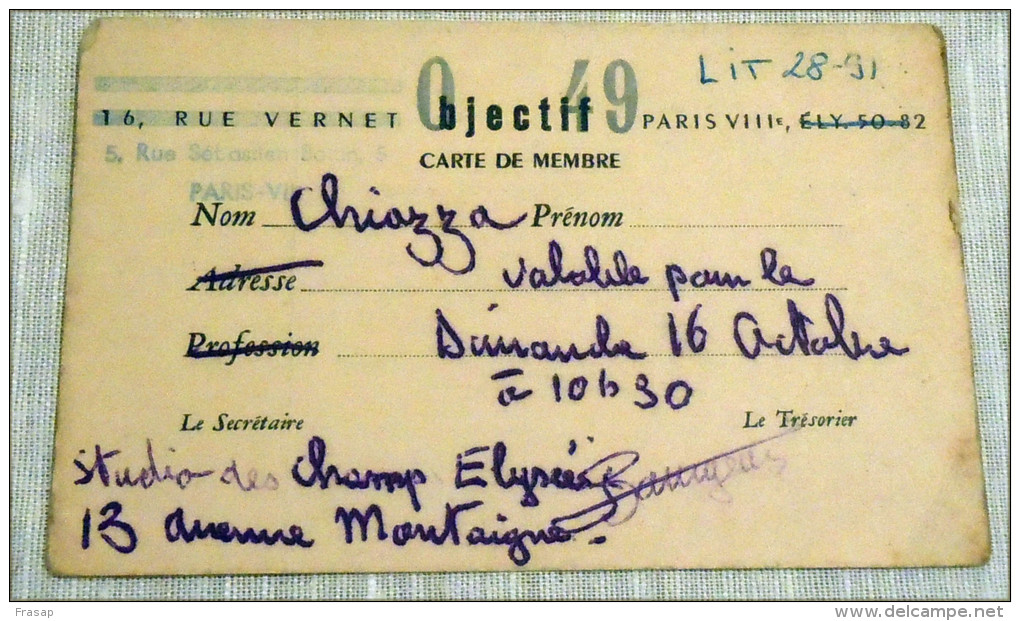 LIT 28-91
16, RUE VERNET Objectif 49 PARIS VIIIe, ÉLY. 50-82
5, Rue Sébastien Bottin, 5
PARIS-VII
CARTE DE MEMBRE
Nom Chiazza Prénom
Adresse valable pour le
Profession Dimanche 16 Octobre
à 10h30
Le Secrétaire Le Trésorier
Studio des Champ Elysées
13 avenue Montaigne.
Frasap
www.delcampe.net